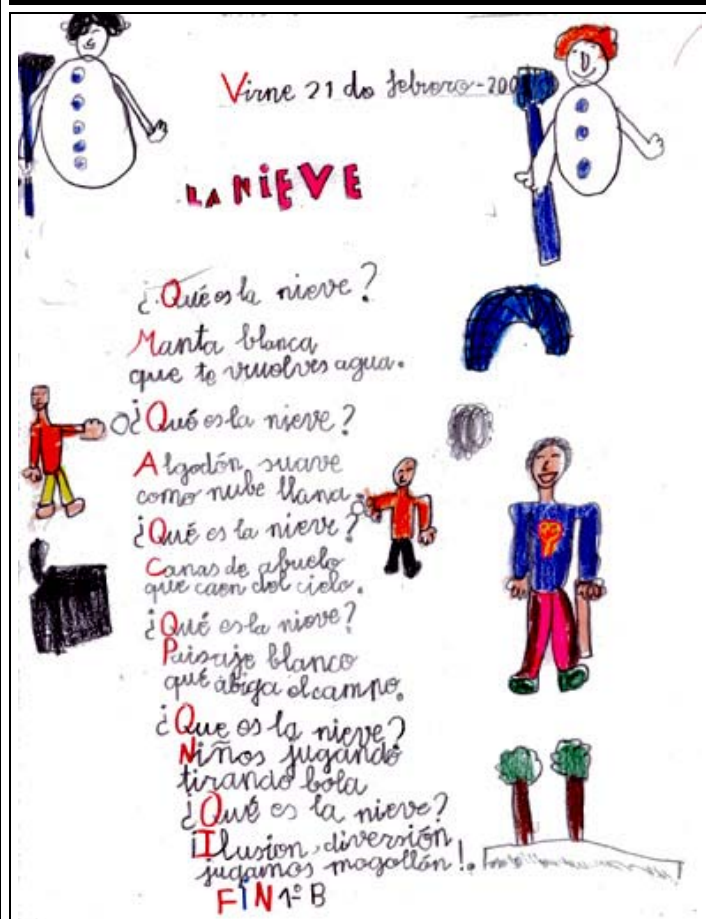 Virne 21 de febrero-200
LA NiEVE
¿Qué es la nieve?
Manta blanca
que te vuelves agua.
¿Qué es la nieve?
Algodón, suave
como nube llana.
¿Qué es la nieve?
Canas de abuelo
que caen del cielo.
¿Qué es la nieve?
Paisaje blanco
que abiga el campo.
¿Que es la nieve?
Niños jugando
tirando bola
¿Qué es la nieve?
¡Ilusion, diversión,
jugamos mogollón!.
FiN 1º B